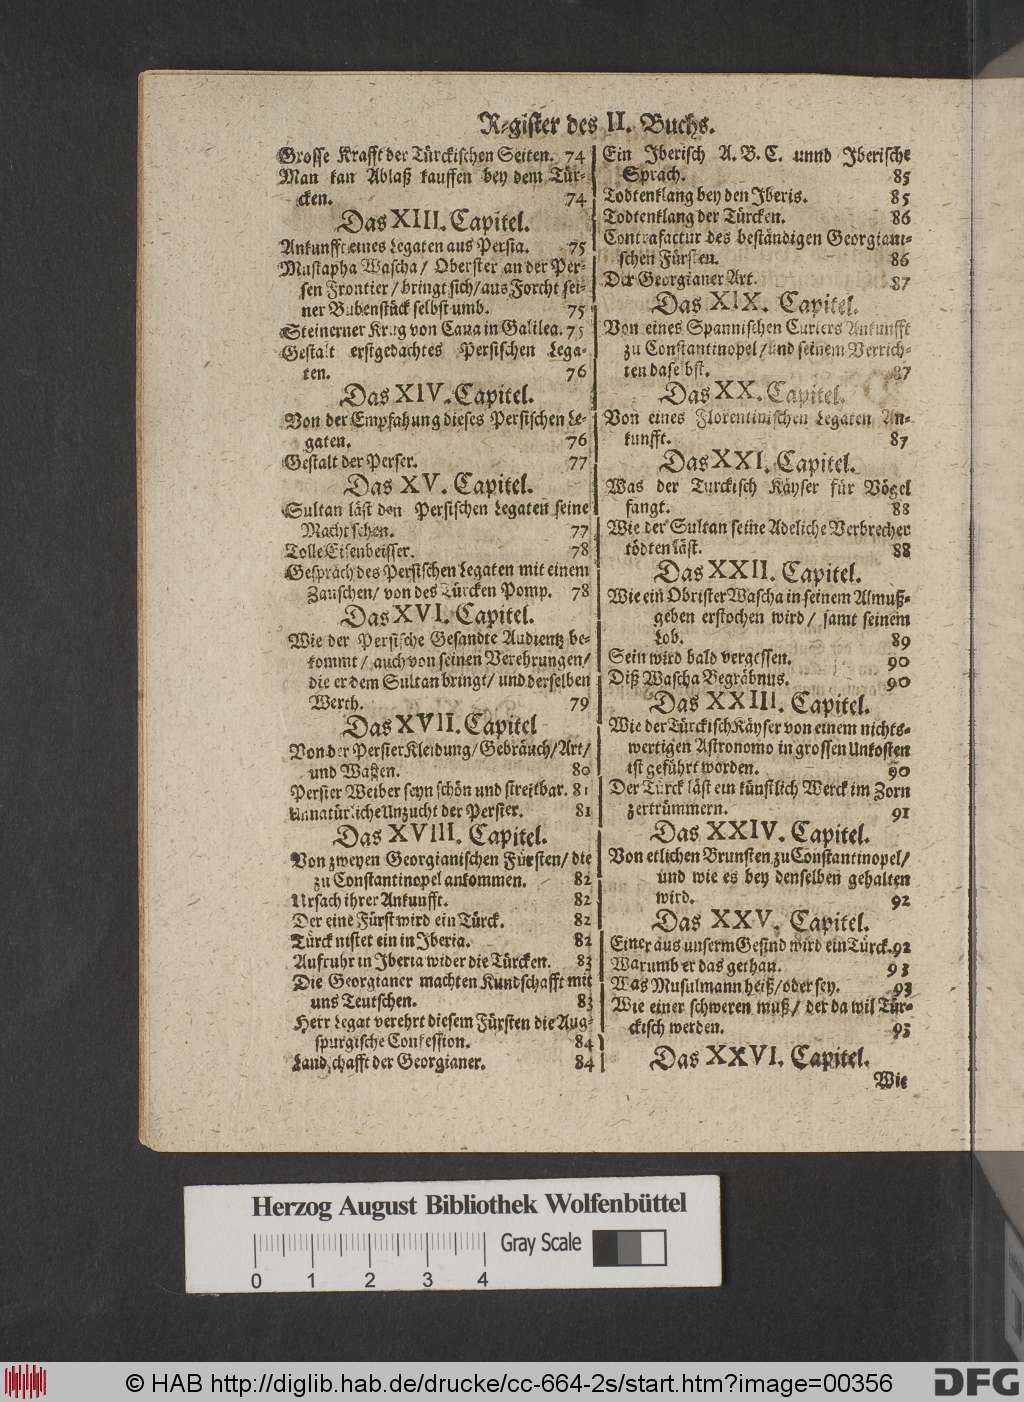 R-gister des II. Buchs.
Grosse Krafft der Türckischen Seiten. 74
Man kan Ablaß kauffen bey dem Tür-
cken. 74
Das XIII. Capitel.
Ankunfft eines Legaten aus Persia. 75
Mustapha Wascha/ Oberster an der Per-
sen Frontier/ bringt sich/ aus Forcht sei-
ner Bubenstück selbst umb. 75
Steinerner Krug von Cana in Galilea. 75
Gestalt erstgedachtes Persischen Lega-
ten. 76
Das XIV. Capitel.
Von der Empfahung dieses Persischen Le-
gaten. 76
Gestalt der Perser. 77
Das XV. Capitel.
Sultan läst den Persischen Legaten seine
Macht sehen. 77
Tolle Eisenbeisser. 78
Gespräch des Persischen Legaten mit einem
Zauschen/ von des Türcken Pomp. 78
Das XVI. Capitel.
Wie der Persische Gesandte Audientz be-
kommt/ auch von seinen Verehrungen/
die er dem Sultan bringt/ und derselben
Werth. 79
Das XVII. Capitel
Von der Persier Kleidung/ Gebräuch/ Art/
und Waffen. 80
Persier Weiber seyn schön und streitbar. 81
Unnatürliche Unzucht der Persier. 81
Das XVIII. Capitel.
Von zweyen Georgianischen Fürsten/ die
zu Constantinopel ankommen. 82
Ursach ihrer Ankunfft. 82
Der eine Fürst wird ein Türck. 82
Türck nistet ein in Iberia. 82
Aufruhr in Iberia wider die Türcken. 83
Die Georgianer machten Kundschafft mit
uns Teutschen. 83
Herr Legat verehrt diesem Fürsten die Aug-
spurgische Confession. 84
Landschafft der Georgianer. 84
Ein Iberisch A. B. C. unnd Iberische
Sprach. 85
Todtenklang bey den Iberis. 85
Todtenklang der Türcken. 86
Contrafactur des beständigen Georgiani-
schen Fürsten. 86
Der Georgianer Art. 87
Das XIX. Capitel.
Von eines Spannischen Curiers Ankunfft
zu Constantinopel/ und seinem Verrich-
ten daselbst. 87
Das XX. Capitel.
Von eines Florentinischen Legaten An-
kunfft. 87
Das XXI. Capitel.
Was der Türckisch Käyser für Vögel
fangt. 88
Wie der Sultan seine Adeliche Verbrecher
tödten läst. 88
Das XXII. Capitel.
Wie ein Obrister Wascha in seinem Almuß-
geben erstochen wird/ samt seinem
Lob. 89
Sein wird bald vergessen. 90
Diß Wascha Begräbnus. 90
Das XXIII. Capitel.
Wie der Türckisch Käyser von einem nichts-
wertigen Astronomo in grossen Unkosten
ist geführt worden. 90
Der Türck läst ein künstlich Werck im Zorn
zertrümmern. 91
Das XXIV. Capitel.
Von etlichen Brunsten zu Constantinopel/
und wie es bey denselben gehalten
wird. 92
Das XXV. Capitel.
Einer aus unserm Gesind wird ein Türck. 92
Warumb er das gethan. 93
Was Musulmann heiß/ oder sey. 93
Wie einer schweren muß/ der da wil Tür-
ckisch werden. 93
Das XXVI. Capitel.
Wie
Herzog August Bibliothek Wolfenbüttel
Gray Scale
0 1 2 3 4
© HAB http://diglib.hab.de/drucke/cc-664-2s/start.htm?image=00356
DFG